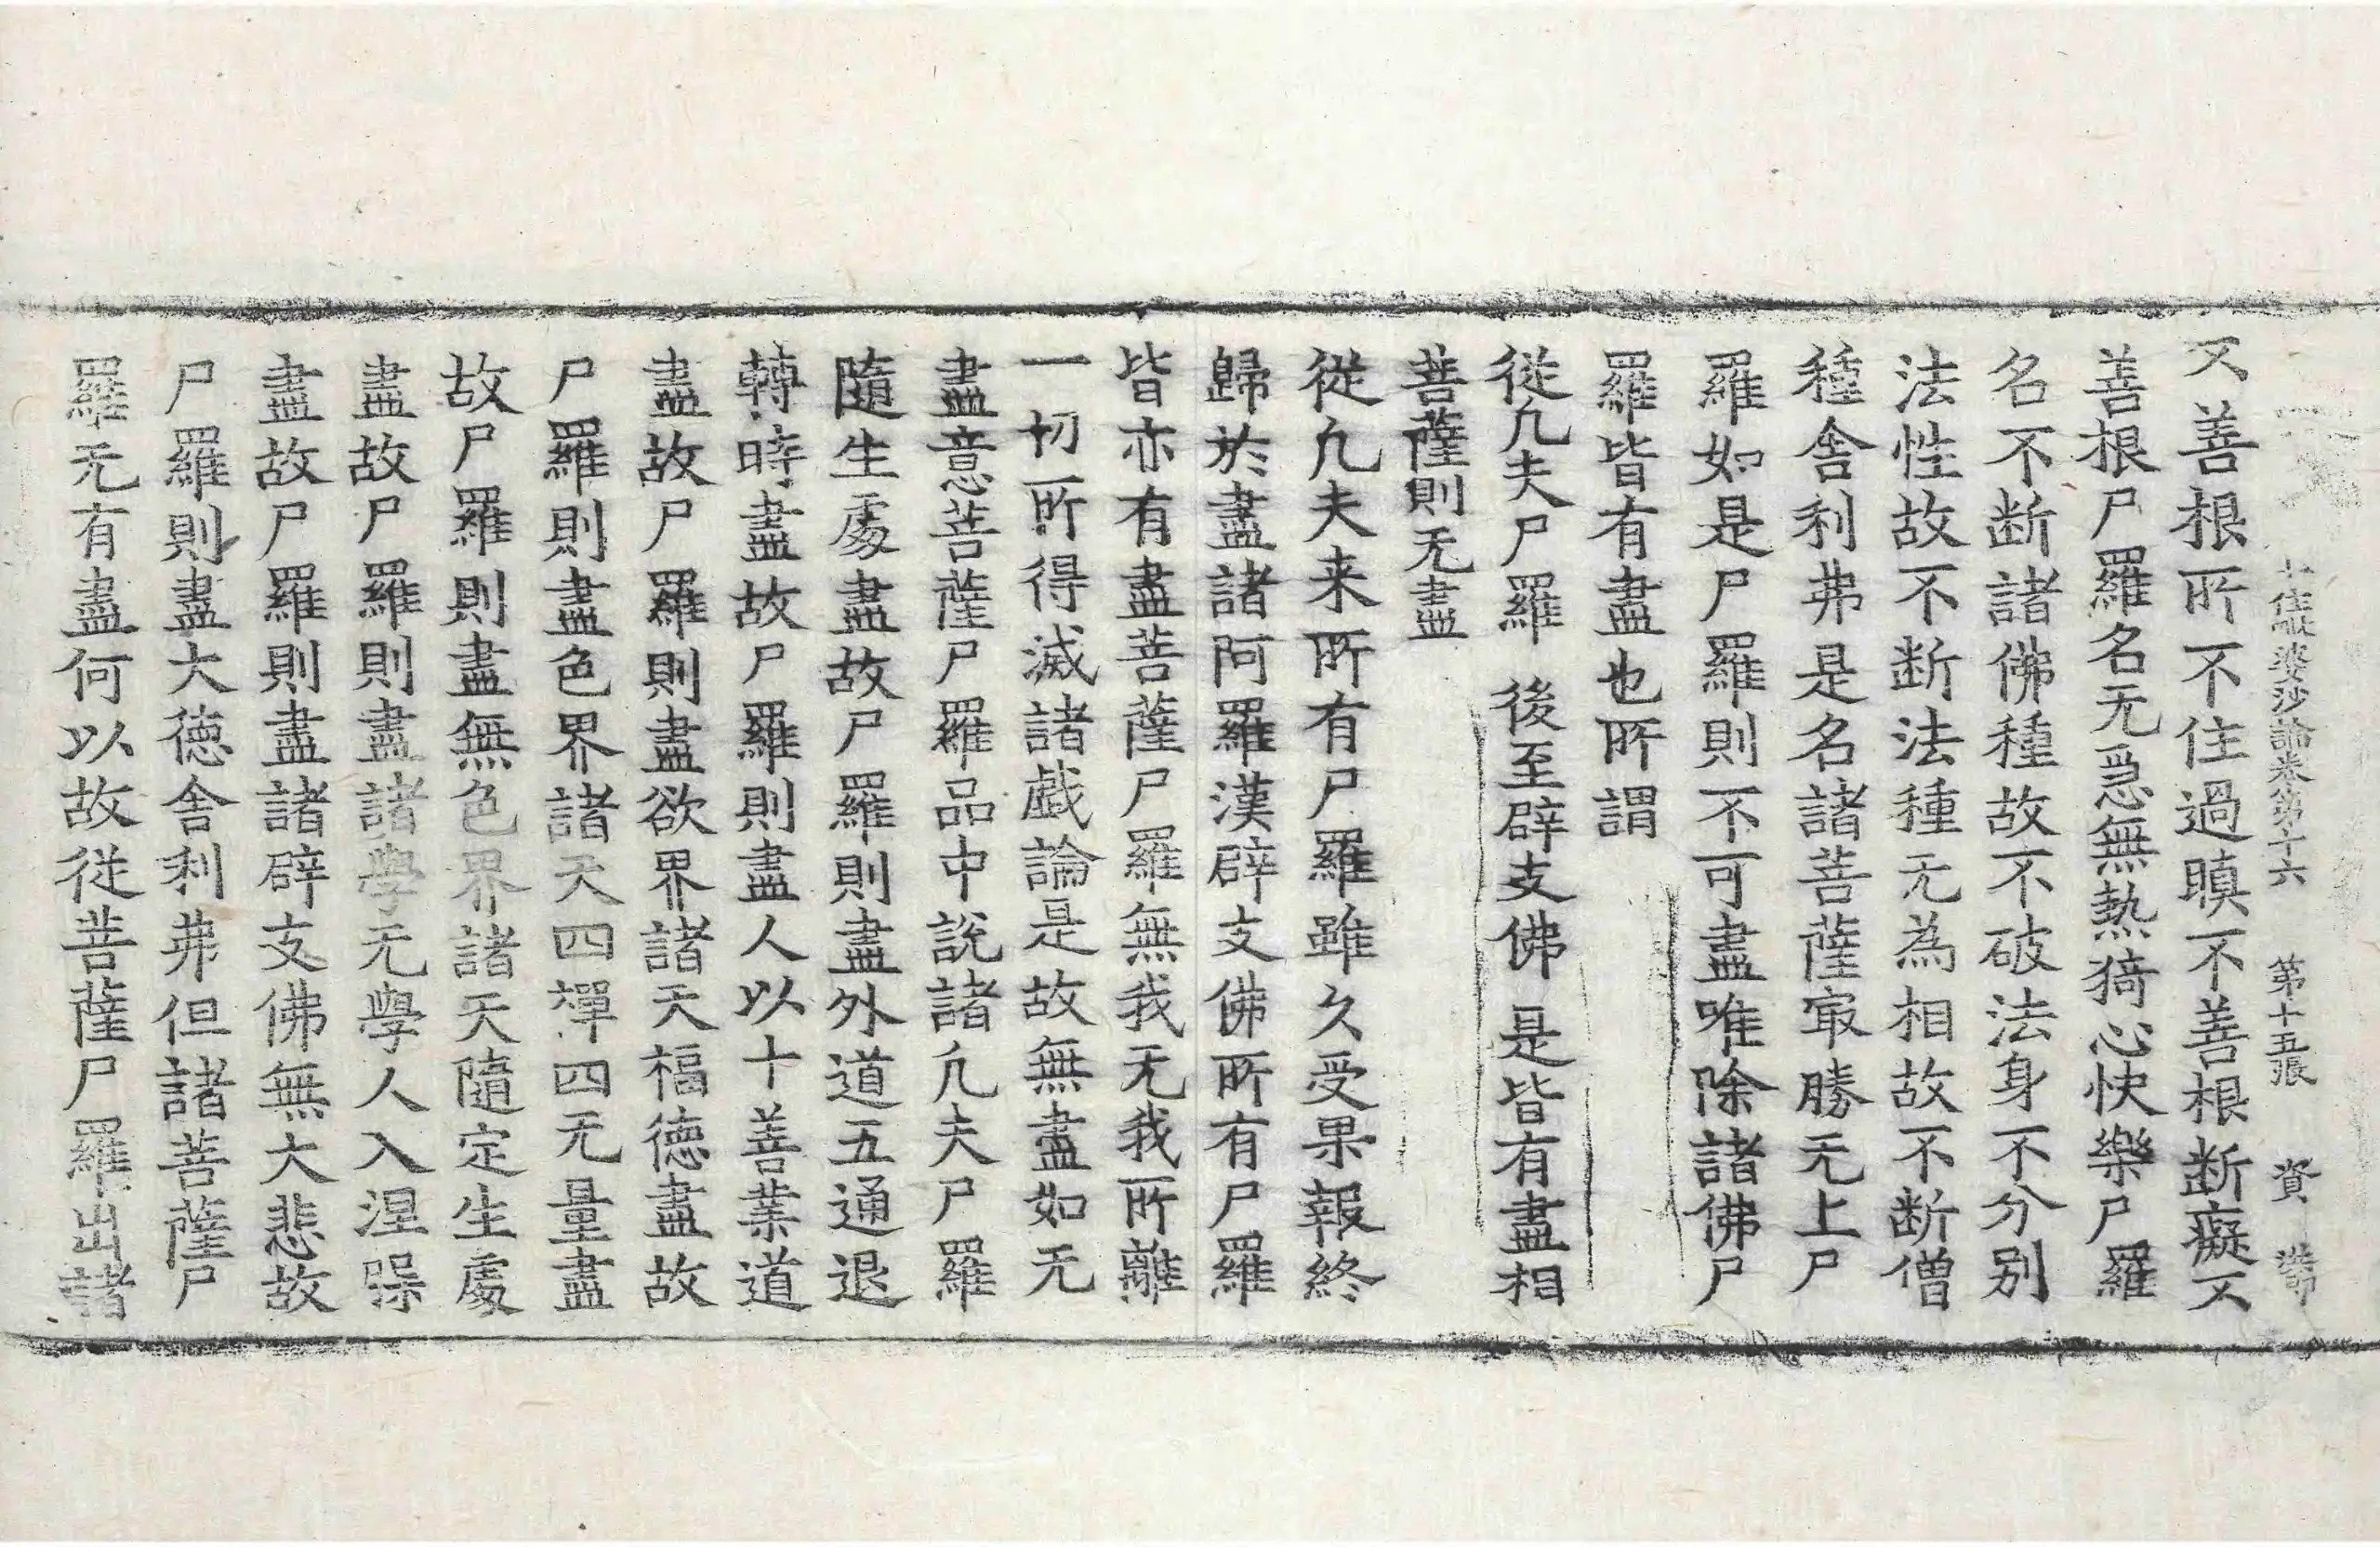 十住毗婆沙論卷第十六　第十五張　資
又善根所不住過瞋不善根断癡不
善根尸羅名无急無熱猗心快樂尸羅
名不断諸佛種故不破法身不分別
法性故不断法種无為相故不断僧
種舍利弗是名諸菩薩㝡勝无上尸
羅如是尸羅則不可盡唯除諸佛尸
羅皆有盡也所謂
從凢夫尸羅　後至辟支佛　是皆有盡相
菩薩則无盡
從凢夫来所有尸羅雖久受果報終
歸於盡諸阿羅漢辟支佛所有尸羅
皆亦有盡菩薩尸羅無我无我所離
一切所得滅諸戯論是故無盡如无
盡意菩薩尸羅品中說諸凢夫尸羅
隨生處盡故尸羅則盡外道五通退
轉時盡故尸羅則盡人以十善業道
盡故尸羅則盡欲界諸天福德盡故
尸羅則盡色界諸天四禪四无量盡
故尸羅則盡無色界諸天隨定生處
盡故尸羅則盡諸學无學人入涅槃
盡故尸羅則盡諸辟支佛無大悲故
尸羅則盡大德舍利弗但諸菩薩尸
羅无有盡何以故從菩薩尸羅出諸